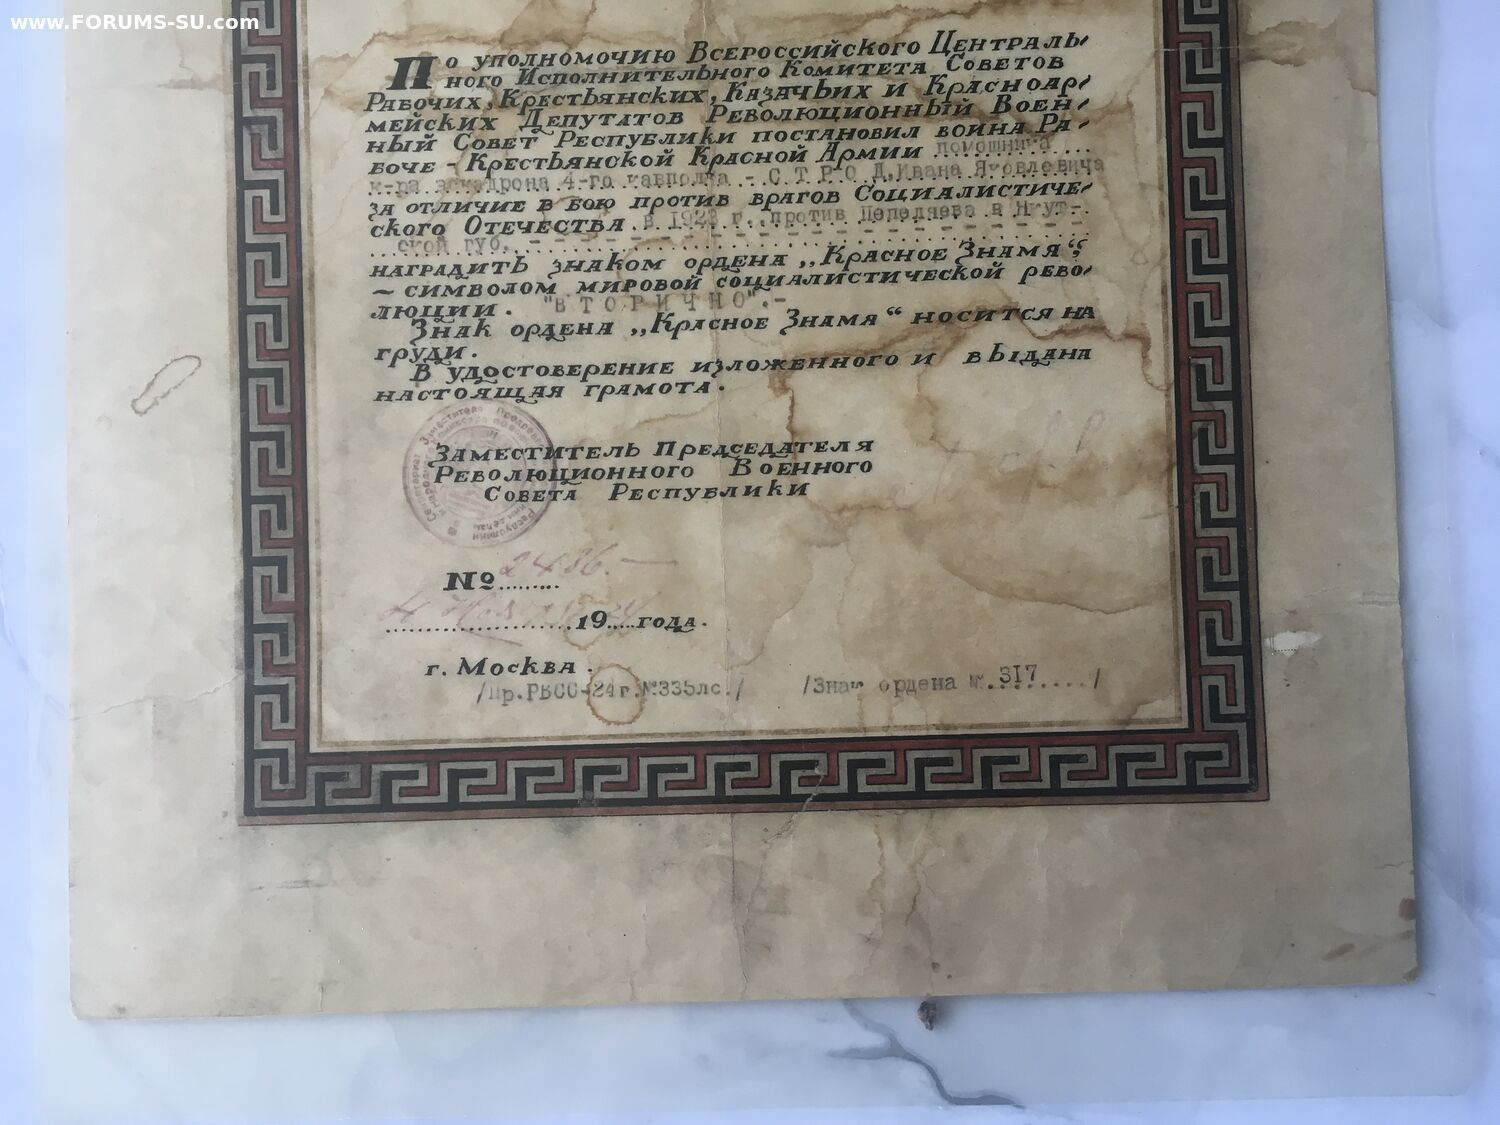 www.FORUMS-SU.com
По уполномочию Всероссийского Централь-
ного Исполнительного Комитета Советов
Рабочих, Крестьянских, Казачьих и Красноар-
мейских Депутатов Революционный Воен-
ный Совет Республики постановил воина Ра-
боче-Крестьянской Красной Армии помощника
к-ра эскадрона 4-го кавполка - С Т Р О Д, Ивана Яковлевича
за отличие в бою против врагов Социалистиче-
ского Отечества в 1923 г., против Пепеляева в Якут-
ской губ.
наградить знаком ордена „Красное Знамя“,
~ символом мировой социалистической рево-
люции. "В Т О Р И Ч Н О".-
Знак ордена „Красное Знамя“ носится на
груди.
В удостоверение изложенного и выдана
настоящая грамота.
Заместитель Председателя
Революционного Военного
Совета Республики
№ 2486.-
4 19 года.
г. Москва.
/Пр.РВСС-24г.№335лс./ /Знак ордена №.317....../